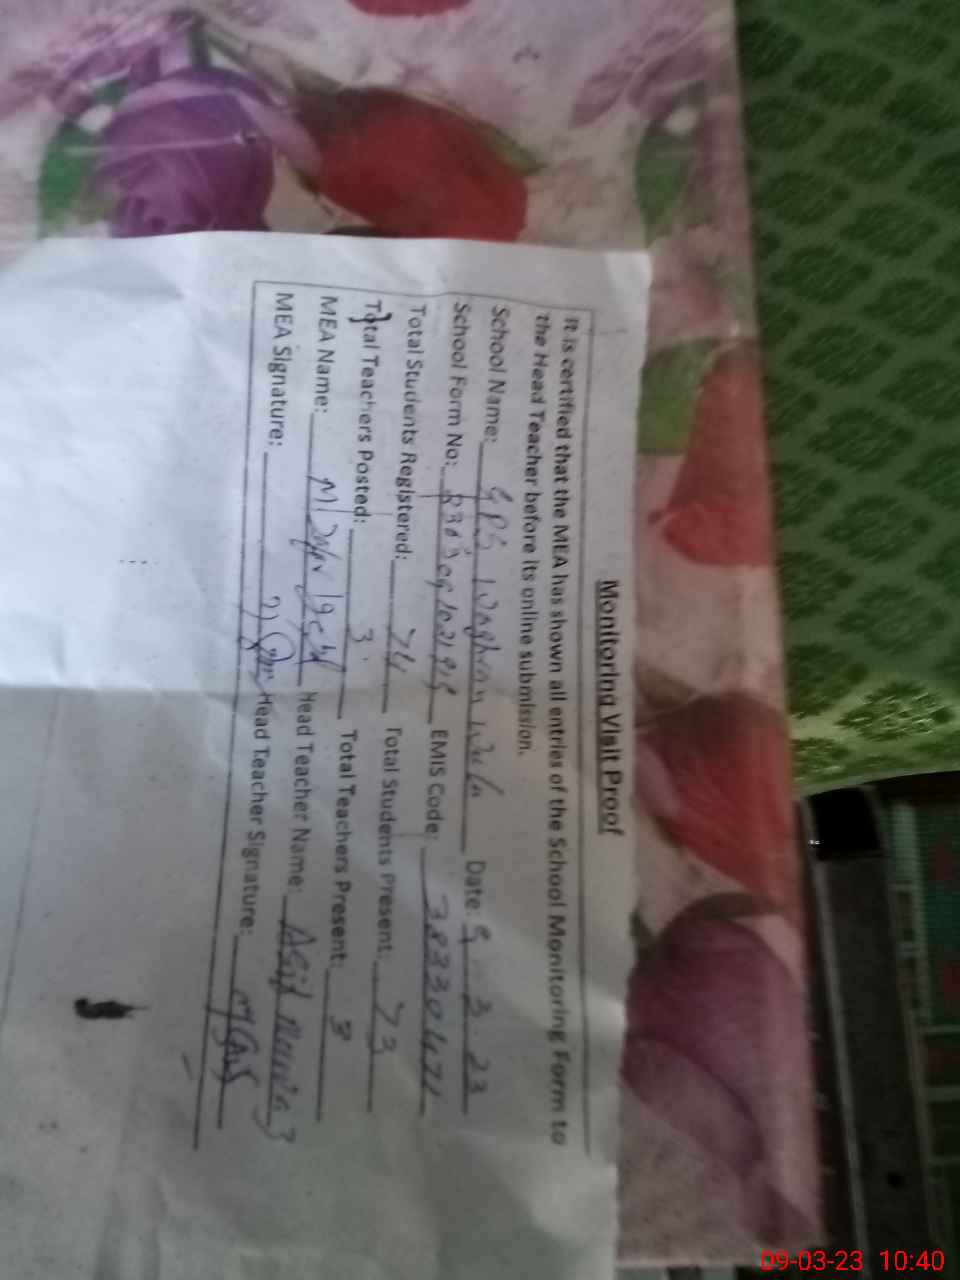 Monitoring Visit Proof
It is certified that the MEA has shown all entries of the School Monitoring Form to
the Head Teacher before its online submission.
School Name: GPS Date: 9-3-23
School Form No: EMIS Code: 38330471
Total Students Registered: 74 Total Students Present: 73
Total Teachers Posted: 3 Total Teachers Present: 3
MEA Name: Head Teacher Name: Asif
MEA Signature: Head Teacher Signature:
09-03-23 10:40